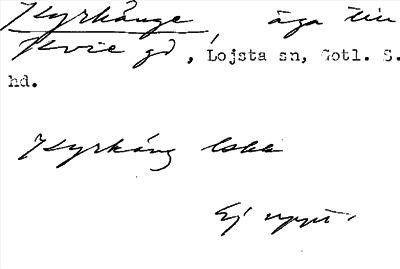 Kyrkänge, äga till
Kvie gd, Lojsta sn, Gotl. S.
hd.
Kyrkäng
Ej uppt.